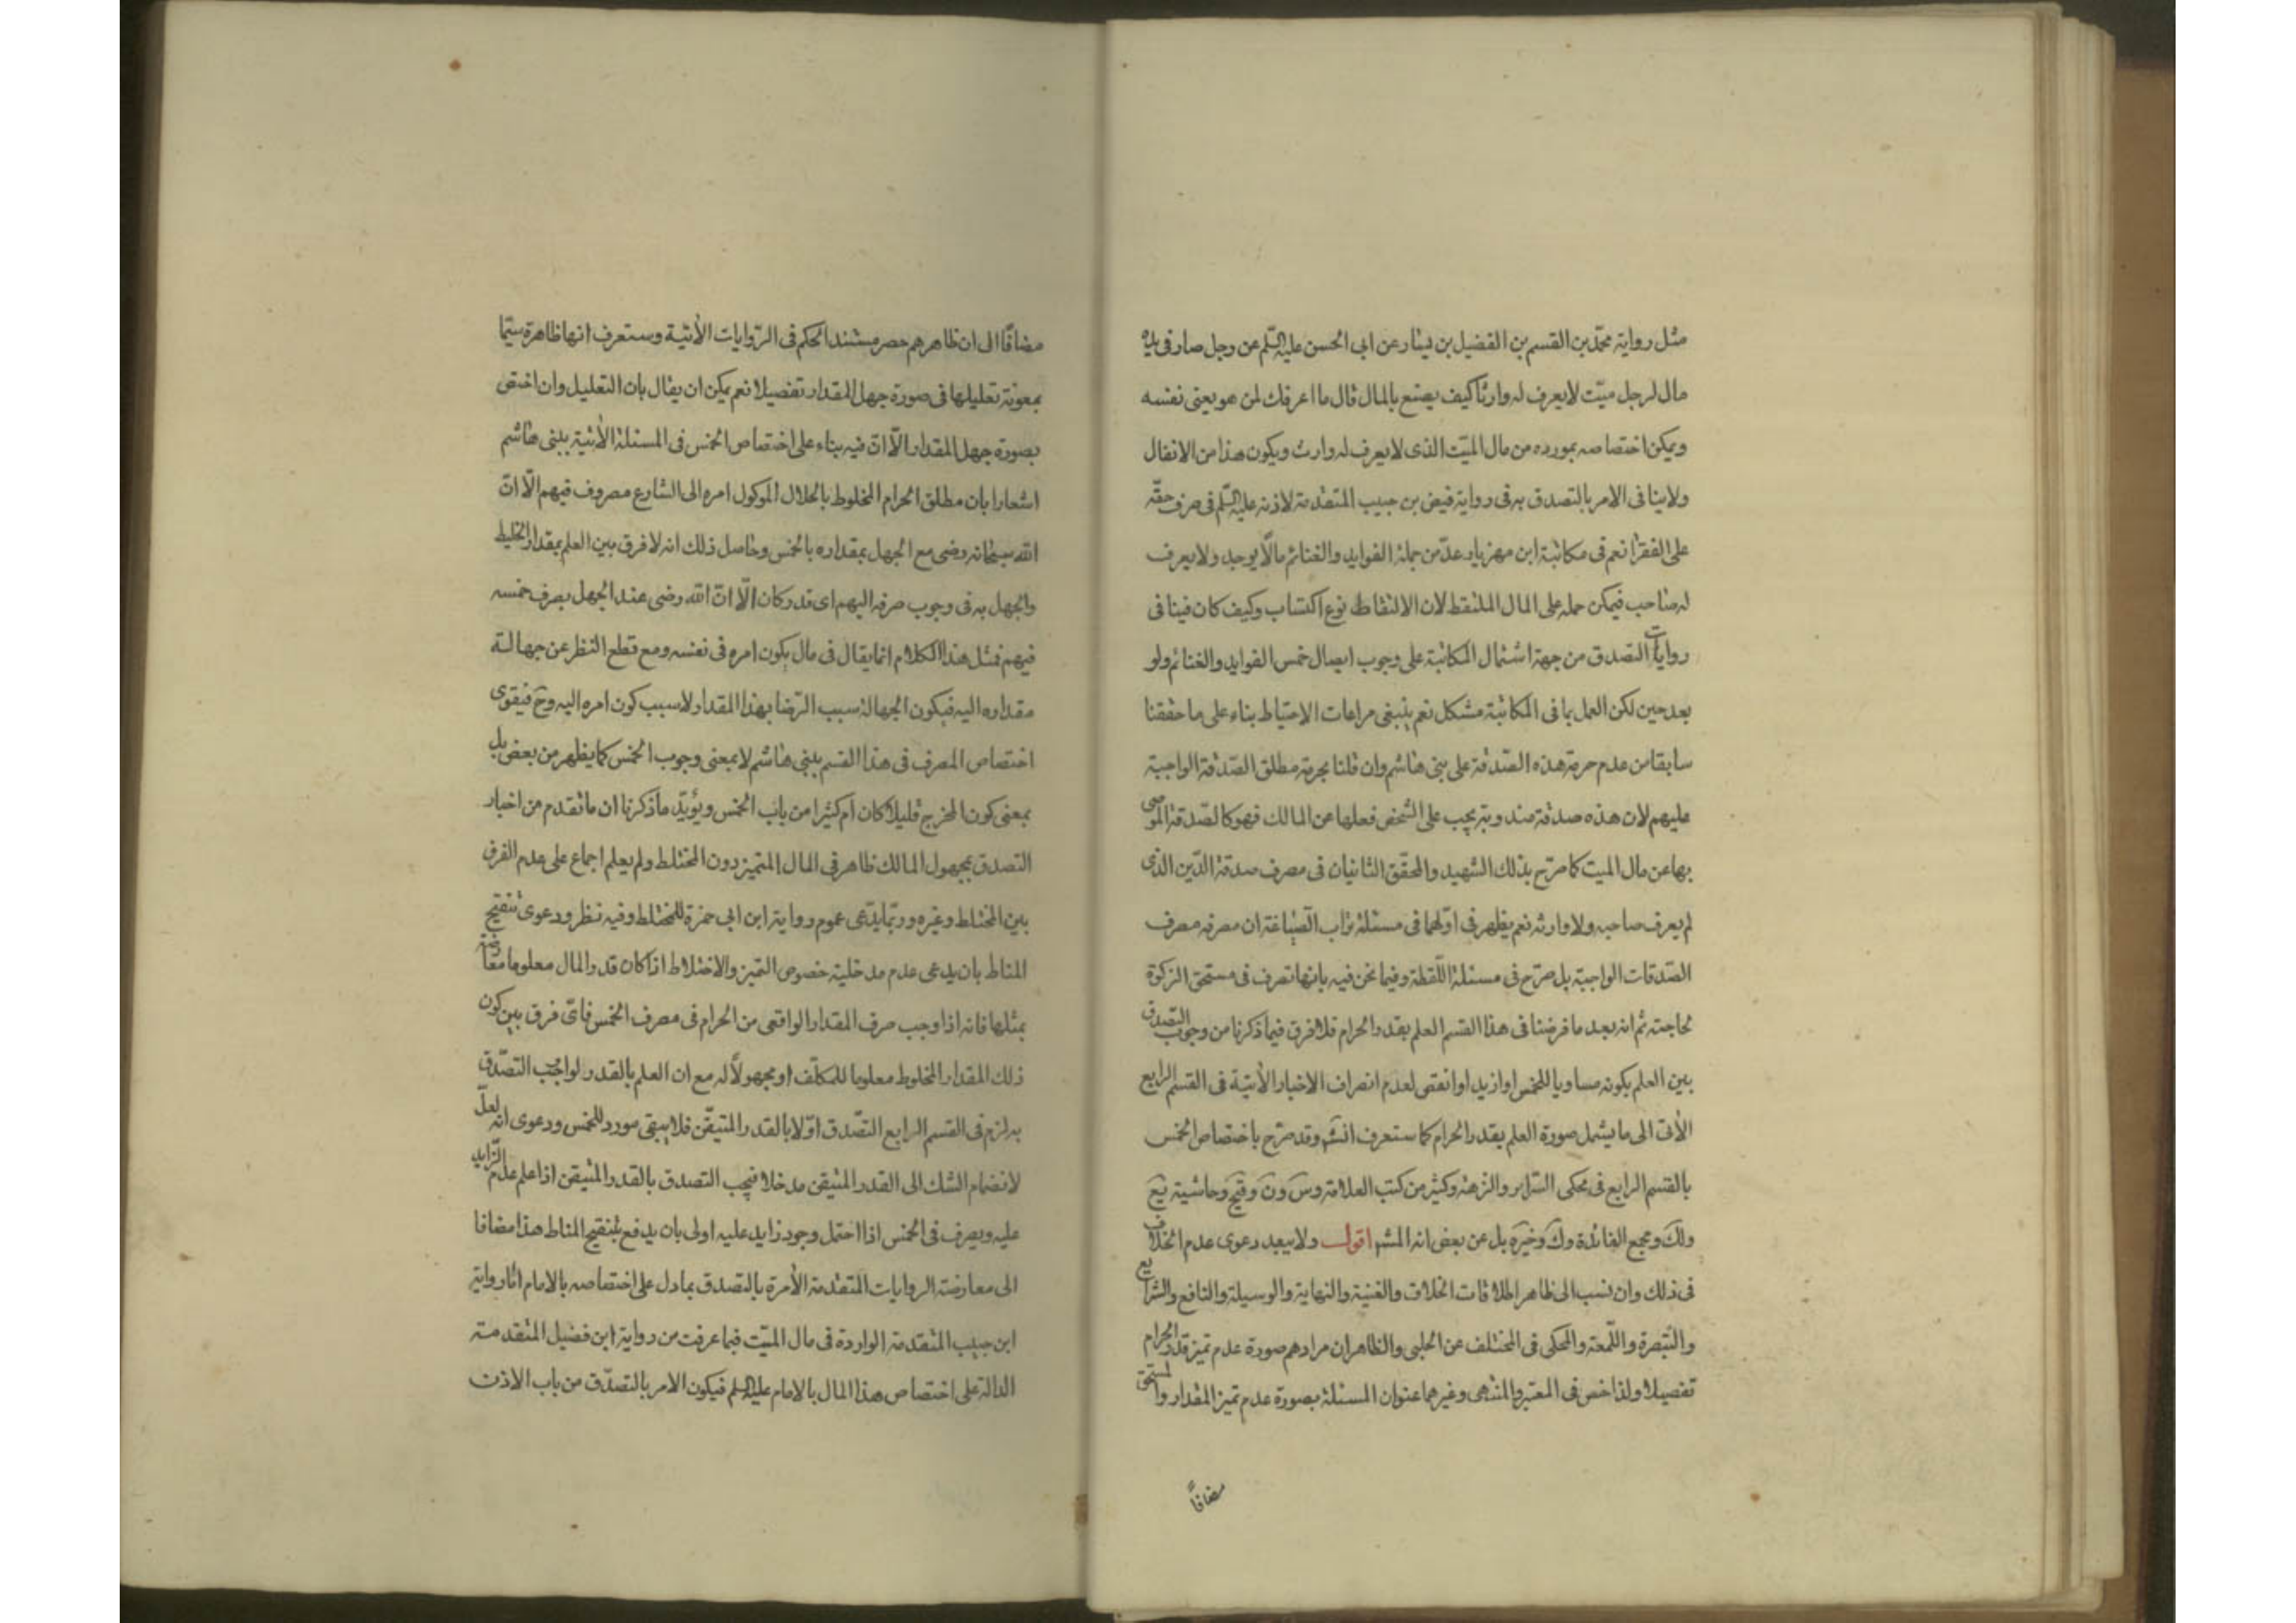 مثل رواية محمّد بن القسم بن الفضيل بن يسار عن ابى الحسن عليه السّلم عن رجل صار فى يده
مال لرجل ميّت لا يعرف له وارثا كيف يصنع بالمال قال ما اعرفك لمن هو يعنى نفسه
ويمكن اختصاصه بمورده من مال الميّت الذى لا يعرف له وارث ويكون هذا من الانفال
ولا ينافى الامر بالتصدق به فى رواية فيض بن حبيب المتقدمة لاذنه عليه السّلم فى صرف حقّه
على الفقرا نعم فى مكاتبة ابن مهزيار عدّ من جملة الفوايد والغنائم مالًا يوجد ولا يعرف
له صاحب فيمكن حمله على المال الملتقط لان الالتقاط نوع اكتساب وكيف كان فينافى
روايات التصدق من جهة اشتمال المكاتبة على وجوب ايصال خمس الفوايد والغنائم ولو
بعد حين لكن العمل بما فى المكاتبة مشكل نعم ينبغى مراعات الاحتياط بناء على ما حققنا
سابقا من عدم حرمة هذه الصّدقة على بنى هاشم وان قلنا بحرمة مطلق الصّدقة الواجبة
عليهم لان هذه صدقة مندوبة يجب على الشخص فعلها عن المالك فهو كالصّدقة الموصى
بها عن مال الميت كما صرّح بذلك الشهيد والمحقّق الثانيان فى مصرف صدقة الدّين الذى
لم يعرف صاحبه ولا وارثه نعم يظهر فى اوّلهما فى مسئلة تراب الصّياغة ان مصرفه مصرف
الصّدقات الواجبة بل صرّح فى مسئلة اللّقطة وفيما نحن فيه بانها تصرف فى مستحق الزكوة
لحاجته ثم انه بعد ما فرضنا فى هذا القسم العلم بقدر الحرام فلا فرق فيما ذكرنا من وجوب التصدق
بين العلم بكونه مساويا للخمس او ازيد او انقص لعدم انصراف الاخبار الأتية فى القسم الرابع
الأتى الى ما يشمل صورة العلم بقدر الحرام كما ستعرف انشَ وقد صرّح باختصاص الخمس
بالقسم الرابع فى محكى السّرائر والنزهة وكثير من كتب العلامة وسَ ونَ وفيحَ وحاشية يَعَ
ولكَ ومجمع الفائدة وكَ وخيرَه بل عن بعض انه المشهَ اقول ولا يبعد دعوى عدم الخلاف
فى ذلك وان نسب الى ظاهر اطلاقات الخلاف والغنية والنهاية والوسيلة والنافع والشرايع
والتبصرة واللّمعة والمحكى فى المختلف عن الحلبى والظاهر ان مرادهم صورة عدم تميز قدر الحرام
تفصيلا ولذا خص فى المعتبر والمنتهى وغيرهما عنوان المسئلة بصورة عدم تميز المقدار والمستحق
مضافاً
مضافًا الى ان ظاهرهم حصر مستند الحكم فى الرّوايات الأتية وستعرف انها ظاهرة سيّما
بمعونة تعليلها فى صورة جهل المقدار تفصيلا نعم يمكن ان يقال بان التعليل وان اختص
بصورة جهل المقدار الّا انّ فيه بناء على اختصاص الخمس فى المسئلة الأتية ببنى هاشم
اشعارا بان مطلق الحرام المخلوط بالحلال الموكول امره الى الشارع مصروف فيهم الّا انّ
الله سبحانه رضى مع الجهل بمقداره بالخمس وحاصل ذلك انه لا فرق بين العلم بمقدار الخليط
والجهل به فى وجوب صرفه اليهم اى قدر كان الّا انّ الله رضى عند الجهل بصرف خمسه
فيهم فمثل هذا الكلام انما يقال فى مال يكون امره فى نفسه ومع قطع النظر عن جهالة
مقداره اليه فيكون الجهالة سبب الرّضا بهذا المقدار لا سبب كون امره اليه وحَ فيقوى
اختصاص المصرف فى هذا القسم ببنى هاشم لا بمعنى وجوب الخمس كما يظهر من بعض بل
بمعنى كون المخرج قليلا كان ام كثيرا من باب الخمس ويؤيّد ما ذكرنا ان ما تقدم من اخبار
التصدق بمجهول المالك ظاهر فى المال المتميز دون المختلط ولم يعلم اجماع على عدم الفرق
بين المختلط وغيره وربّما يدّعى عموم رواية ابن ابى حمزة للمختلط وفيه نظر ودعوى تنقيح
المناط بان يدعى عدم مدخلية خصوص التميز والاختلاط اذا كان قدر المال معلوما معارضة
بمثلها فانه اذا وجب صرف المقدار الواقعى من الحرام فى مصرف الخمس فاىّ فرق بين كون
ذلك المقدار المخلوط معلوما للمكلف او مجهولًا له مع ان العلم بالقدر لو اوجب التصّدق
به لزم فى القسم الرابع التصّدق اوّلا بالقدر المتيقّن فلا يبقى مورد للخمس ودعوى انه لعلّ
لانضمام الشك الى القدر المتيقن مدخلا فيجب التصدق بالقدر المتيقن اذا علم عدم الزّايد
عليه ويصرف فى الخمس اذا احتمل وجود زايد عليه اولى بان يدفع بتنقيح المناط هذا مضافا
الى معارضة الروايات المتقدمة الأمرة بالتصدق بما دل على اختصاصه بالامام امّا رواية
ابن حبيب المتقدمة الواردة فى مال الميّت فيما عرفت من رواية ابن فضيل المتقدمة
الدالة على اختصاص هذا المال بالامام عليه السلم فيكون الامر بالتصدّق من باب الاذن